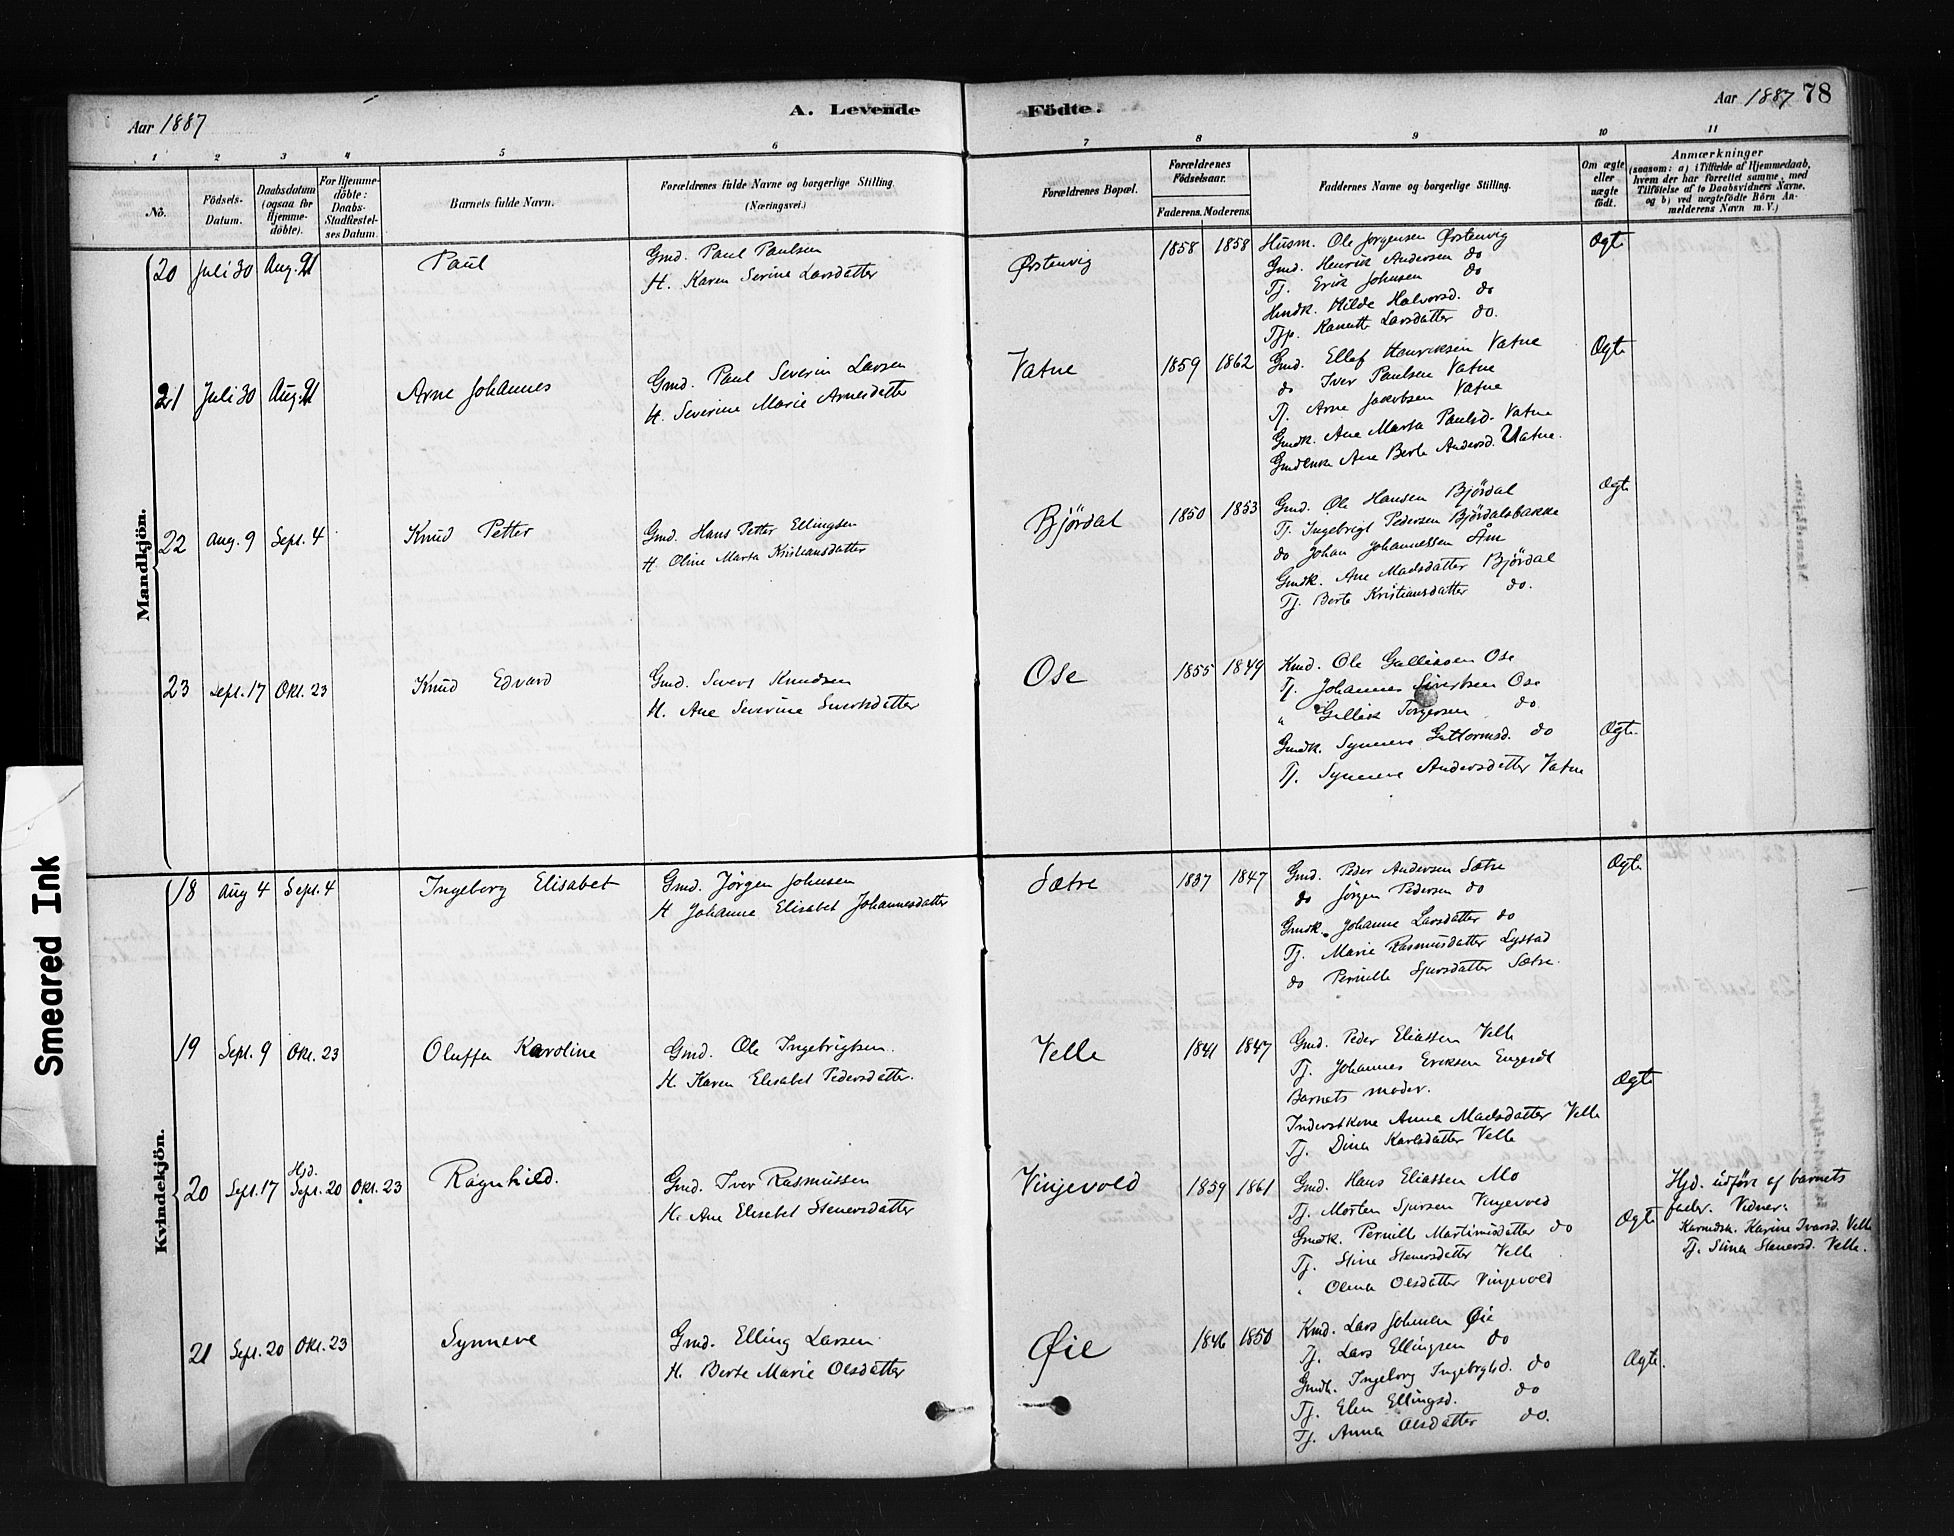 Aar 1887
A. Levende
Födte.
Aar 1887 78
1 2 3 4 5 6 7 8 9 10 11
No.
Födsels-
Datum.
Daabsdatum
(ogsaa for
Hjemme-
döbte).
For Hjemme-
döbte:
Daabs-
Stadfæstel-
ses Datum.
Barnets fulde Navn.
Forældrenes fulde Navne og borgerlige Stilling
(Næringsvei.)
Forældrenes Bopæl.
Forældrenes
Födselsaar.
Faderens. Moderens.
Faddernes Navne og borgerlig Stilling.
Om ægte
eller
uægte
født.
Anmærkninger
(saasom: a) i Tilfælde af Hjemmedaab,
hvem der har forrettet samme, med
Tilföielse af to Daabsvidners Navne,
og b) ved uægtefödte Börn An-
melderens Navn m. V.)
Mandkjön.
20 Juli 30 Aug. 21 Paul
Gmd. Paul Paulsen
H. Karen Serine Larsdatter
Ørstenvig 1858 1858
Husm. Ole Jørgensen Ørstenvig
Gmd. Henrik Andersen do
Tj. Erik Johnsen do
Hmdk. Hilde Halvorsd. do
Tjp. Kanutte Larsdatter do.
Ægte
21 Juli 30 Aug. 21 Arne Johannes
Gmd. Paul Severin Larsen
H. Severine Marie Arnesdatter
Vatne 1859 1862
Gmd. Ellef Henriksen Vatne
do Iver Paulsen Vatne
Tj. Arne Jakobsen Vatne
Gmdk. Ane Marta Paulsd. Vatne
Gmdenke Ane Berte Andersd. Vatne.
Ægte
22 Aug. 9 Sept. 4 Knud Petter
Gmd. Hans Petter Ellingsen
H. Oline Marta Kristiansdatter
Bjørdal 1850 1853
Gmd. Ole Hansen Bjørdal
Tj. Ingebrigt Pedersen Bjørdalsbakke
do Johan Johannessen Åm
Gmdk. Ane Madsdatter Bjørdal
Tj. Berte Kristiansdatter do.
Ægte
23 Sept. 17 Okt. 23 Knud Edvard
Gmd. Sivert Knudsen
H. Ane Severine Sivertsdatter
Ose 1855 1849
Kmd. Ole Gulliksen Ose
Tj. Johannes Sivertsen Ose
" Gullik Torgersen do.
Gmdk. Synneve Guttormsd. do
Tj. Synneve Andersdatter Vatne
Ægte.
Kvindekjön.
18 Aug 4 Sept. 4 Ingeborg Elisabet
Gmd. Jørgen Johnsen
H Johanne Elisabet Johannesdatter
Sætre 1837 1847
Gmd. Peder Andersen Sætre
do Jørgen Pedersen do
Gmdk. Johanne Larsdatter do
Tj. Marie Rasmusdatter Lystad
do Pernille Sjursdatter Sætre.
Ægte
19 Sept. 9 Okt. 23 Oluffa Karoline
Gmd. Ole Ingebrigtsen.
H. Karen Elisabet Pedersdatter.
Velle 1841 1847
Gmd. Peder Eliassen Velle
Tj. Johannes Eriksen Engeset
Barnets moder.
Inderstkone Anna Madsdatter Velle
Tj. Dina Karlsdatter Velle
Ægte
20 Sept. 17 Hjd. Sept. 20 Okt. 23 Ragnhild.
Gmd. Iver Rasmussen
H. Ane Elisabet Stenersdatter
Vinjevold 1859 1861
Gmd. Hans Eliassen Mo
Tj. Morten Sjursen Vinjevold
Gmdk. Pernille Martinusdatter do
Tj. Stine Stenersdatter Velle
" Olina Olsdatter Vinjevold
Ægte
Hjd. udført af barnets
fader. Vidner:
Karmdsk. Karine Ivarsd. Velle
Tj. Stina Stenersd. Velle.
21 Sept. 20 Okt. 23 Synneve
Gmd. Elling Larsen
H. Berte Marie Olsdatter
Øie 1846 1850
Kmd. Lars Johnsen Øie
Tj. Lars Ellingsen do
Gmdk. Ingeborg Ingebrigtsd. do
Tj. Elen Ellingsd. do
Tj. Anna Olsdatter do.
Ægte.
Smeared Ink